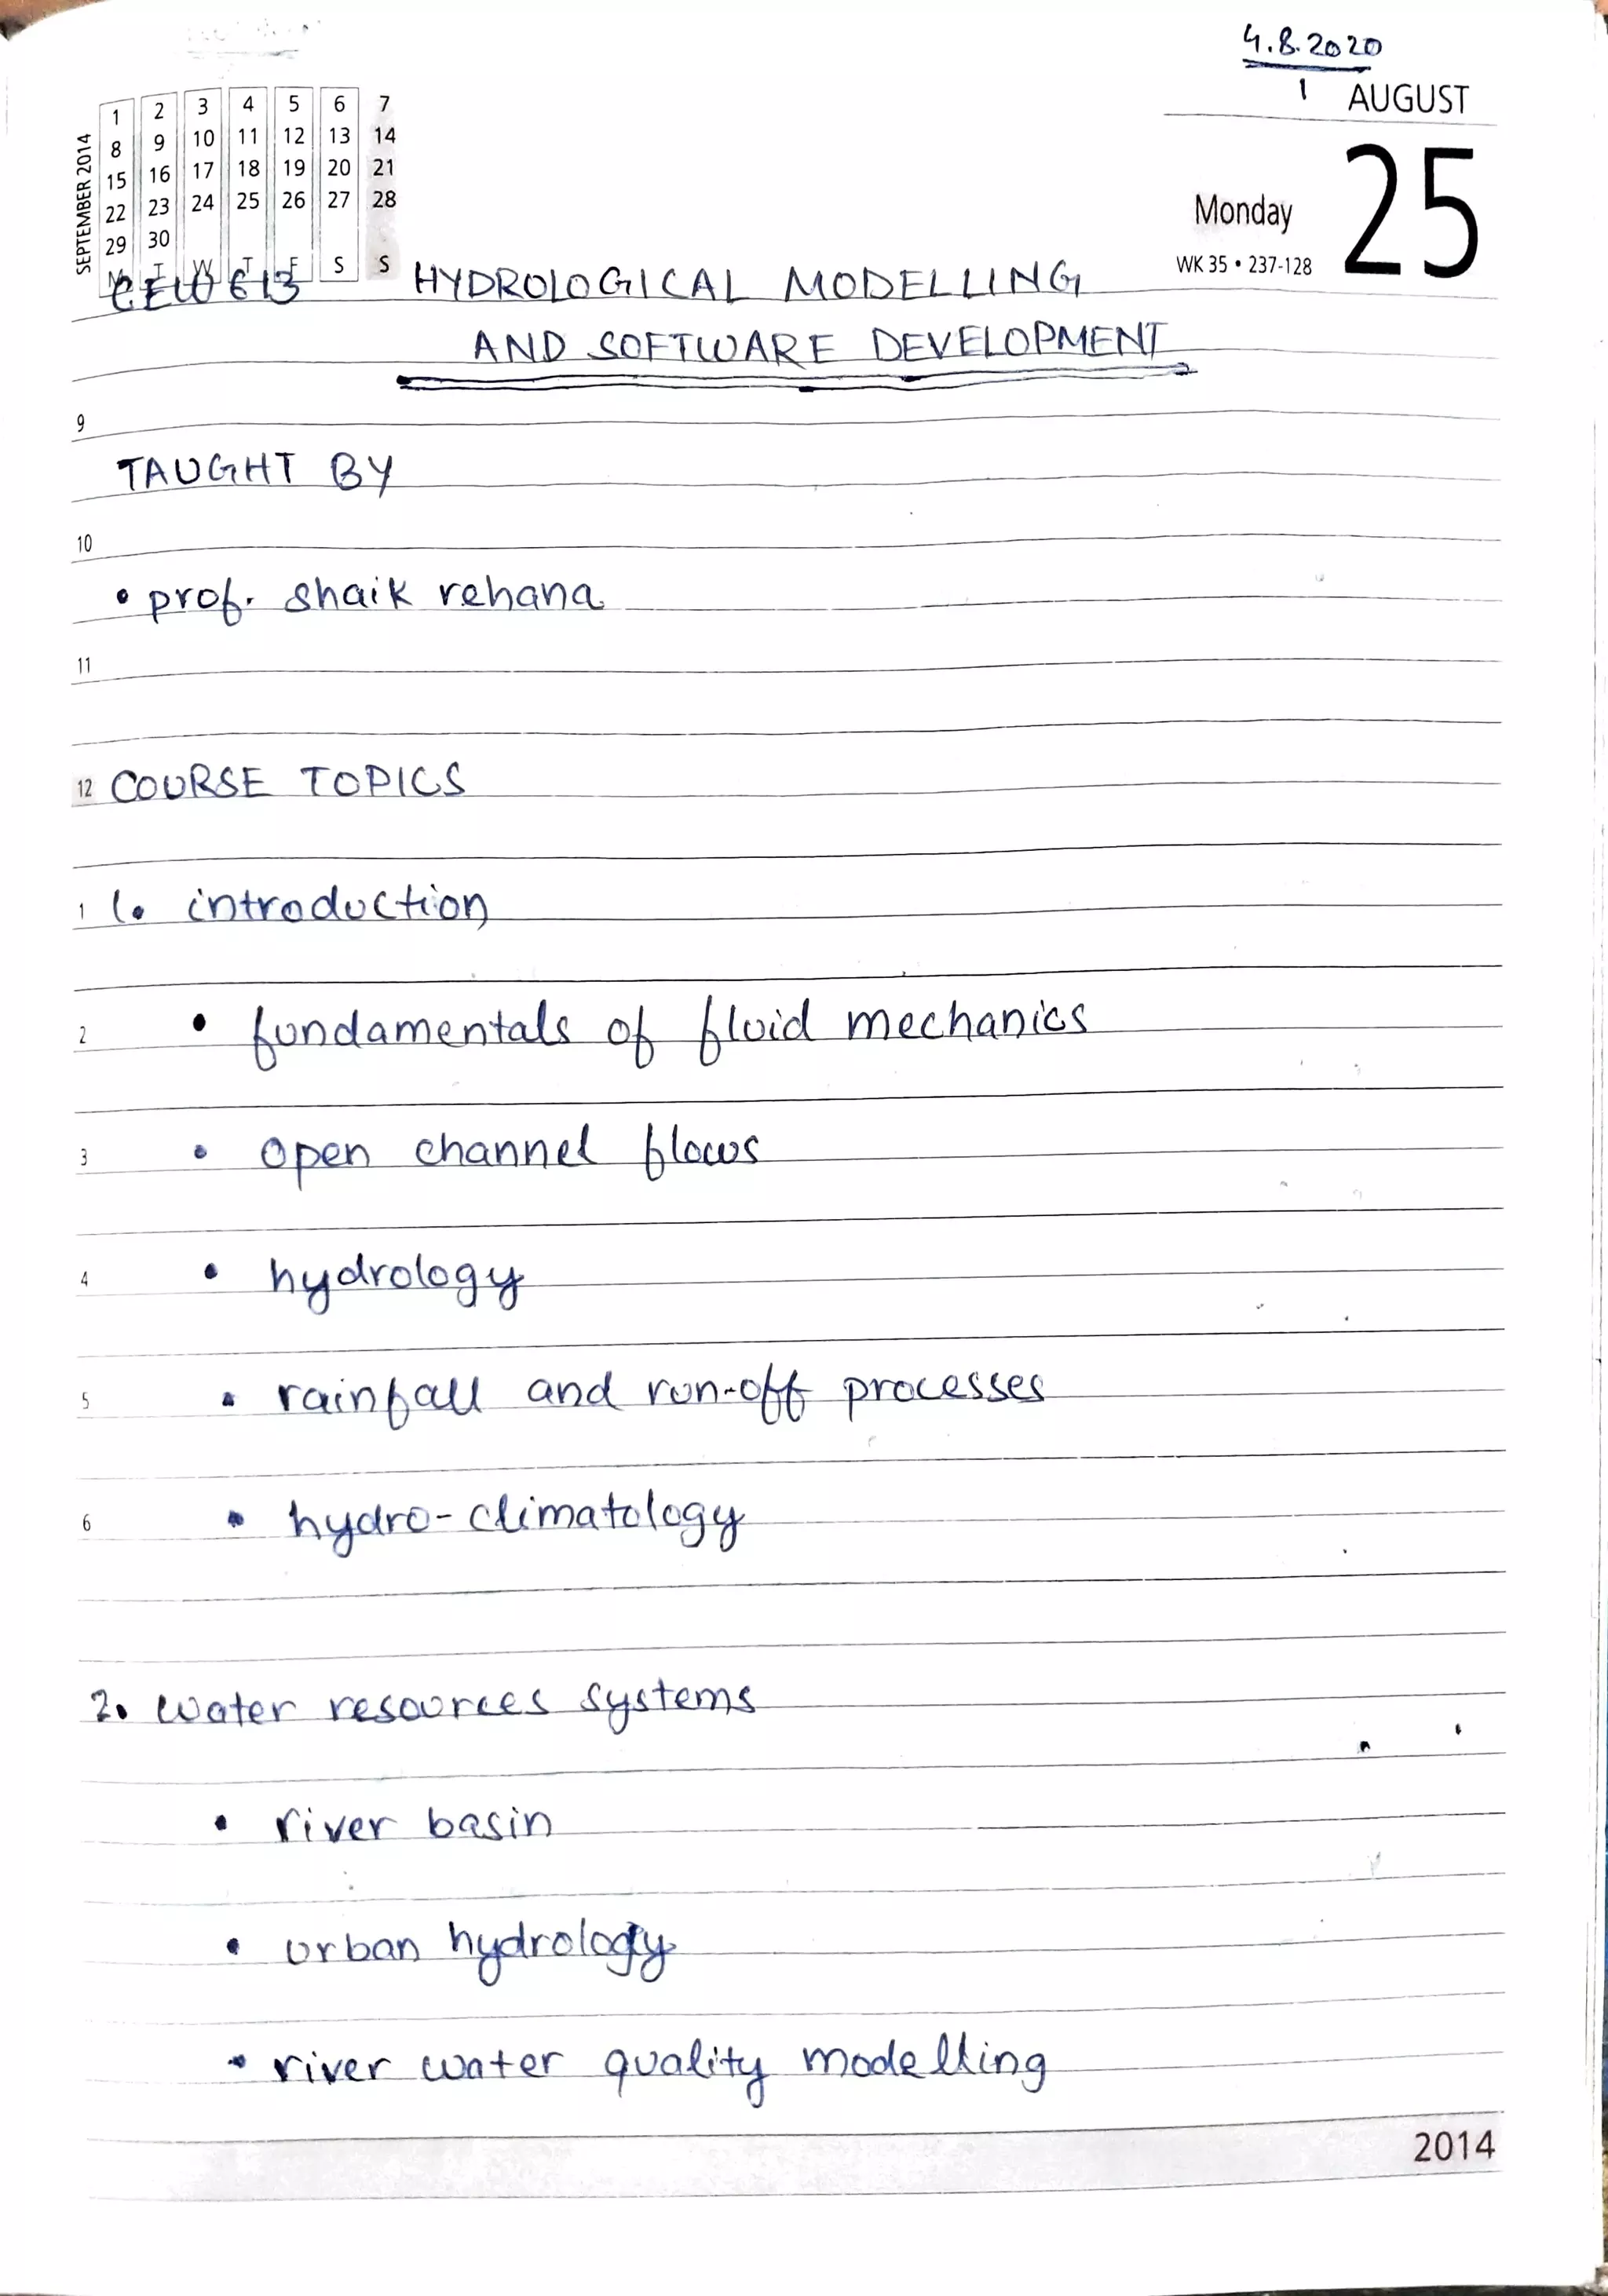 4.8.2020
1 AUGUST
Monday 25
WK 35 • 237-128
SEPTEMBER 2014
1 2 3 4 5 6 7
8 9 10 11 12 13 14
15 16 17 18 19 20 21
22 23 24 25 26 27 28
29 30
M T W T F S S
CEW613 HYDROLOGICAL MODELLING
AND SOFTWARE DEVELOPMENT
9
TAUGHT BY
10
• prof. shaik rehana
11
12 COURSE TOPICS
1 1. introduction
2 • fundamentals of fluid mechanics
3 • open channel flows
4 • hydrology
5 • rainfall and run-off processes
6 • hydro-climatology
2. water resources systems
• river basin
• urban hydrology
• river water quality modelling
2014